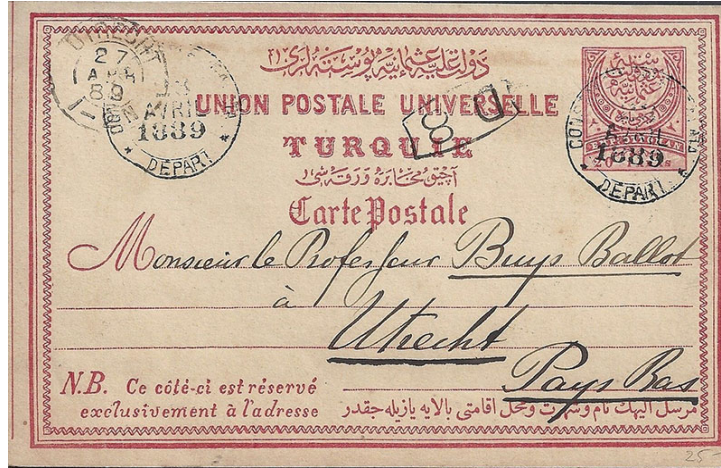 دولت علیۀ عثمانیه پوسته لری
UNION POSTALE UNIVERSELLE
TURQUIE
آچیق مخابره ورقه سی
Carte Postale
UTRECHT
27
APR
89
23
AVRIL
1889
DEPART
AVRIL
1889
DEPART
Monsieur le Professeur Buys Ballot
à
Utrecht
Pays Bas
N.B. Ce côté-ci est réservé
exclusivement à l'adresse
مرسل الیهك نام وشهرت ومحل اقامتی بالایه یازیله جقدر
25-